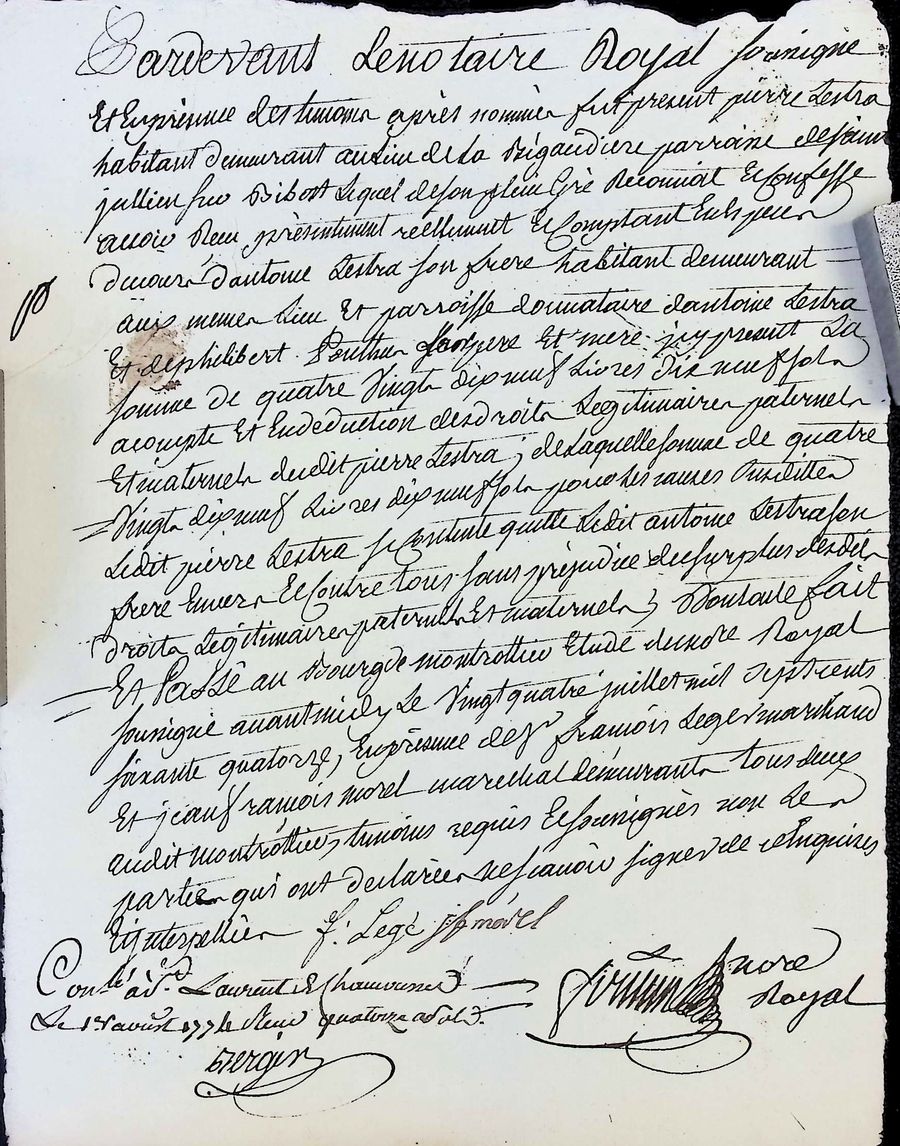 Pardevant Lenotaire Royal sousigne
Et En presence des temoins après nommés fut present pierre Lestra
habitant demurant au Lieu de La Rigaudiere parroisse de saint
jullien sur Bibost Lequel de son plein Gré Reconnoit Et Confesse
avoir Receu présentement reellement Et Comptant En Especes
du cours d'antoine Lestra son frere habitant demeurant
aux memes Lieu Et parroisse donnataire d'antoine Lestra
Et de philibert pere Et mere jcy present La
somme de quatre Vingt dix neuf Livres dix neuf sols
acompte Et En deduction des droits Legitimaires paternels
Et maternels dudit pierre Lestra, de Laquelle somme de quatre
Vingt dix neuf Livres dix neuf sols pour les causes susdittes
Ledit pierre Lestra se Contente quitte Ledit antoine Lestra son
frere Envers Et Contre tous sans préjudice du surplus desdits
droits Légitimaires paternels Et maternels, Dont acte fait
Et Passé au Bourg de montrottier Etude du nore Royal
sousigne avant midy Le Vingt quatre juillet mil sept cents
soixante quatorze, En présence de sr françois Leger marchand
Et jean françois morel marechal demeurants tous deux
audit montrottier, temoins requis Et sousignés non Les
parties qui ont declarées ne scavoir signer de ce Enquises
Et jnterpellées f. Legé jf morel
Conlé à St Laurent de Chamousset
Le 1er aoust 1774 Receu quatorze sols
nore
Royal